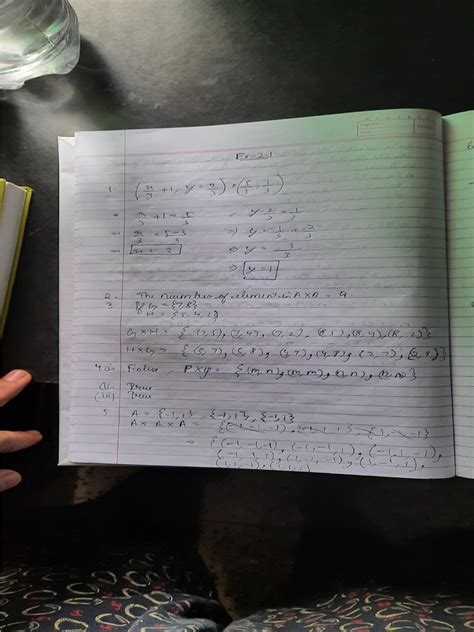 Ex-2.1
1. (x/3 + 1, y - 2/3) = (5/3, 1/3)
⇒ x/3 + 1 = 5/3 , y - 2/3 = 1/3
⇒ x/3 = 5-3/3 ⇒ y = 1/3 + 2/3
⇒ x = 2 ⇒ y = 3/3
⇒ y = 1
2. The number of element in A×A = 9
3 If G = {7,8}
H = {5,4,2}
G×H = {(7,5), (7,4), (7,2), (8,5), (8,4), (8,2)}
H×G = {(5,7), (5,8), (4,7), (4,8), (2,7), (2,8)}
4 (i) False, P×Q = {(m,n), (m,m), (n,n), (n,m)}
(ii) True
(iii) True
5. A = {-1,1}, {-1,1}, {-1,1}
A×A×A =
= {(-1,-1,-1), (-1,-1,1), (-1,1,-1),
(-1,1,1), (1,-1,-1), (1,-1,1),